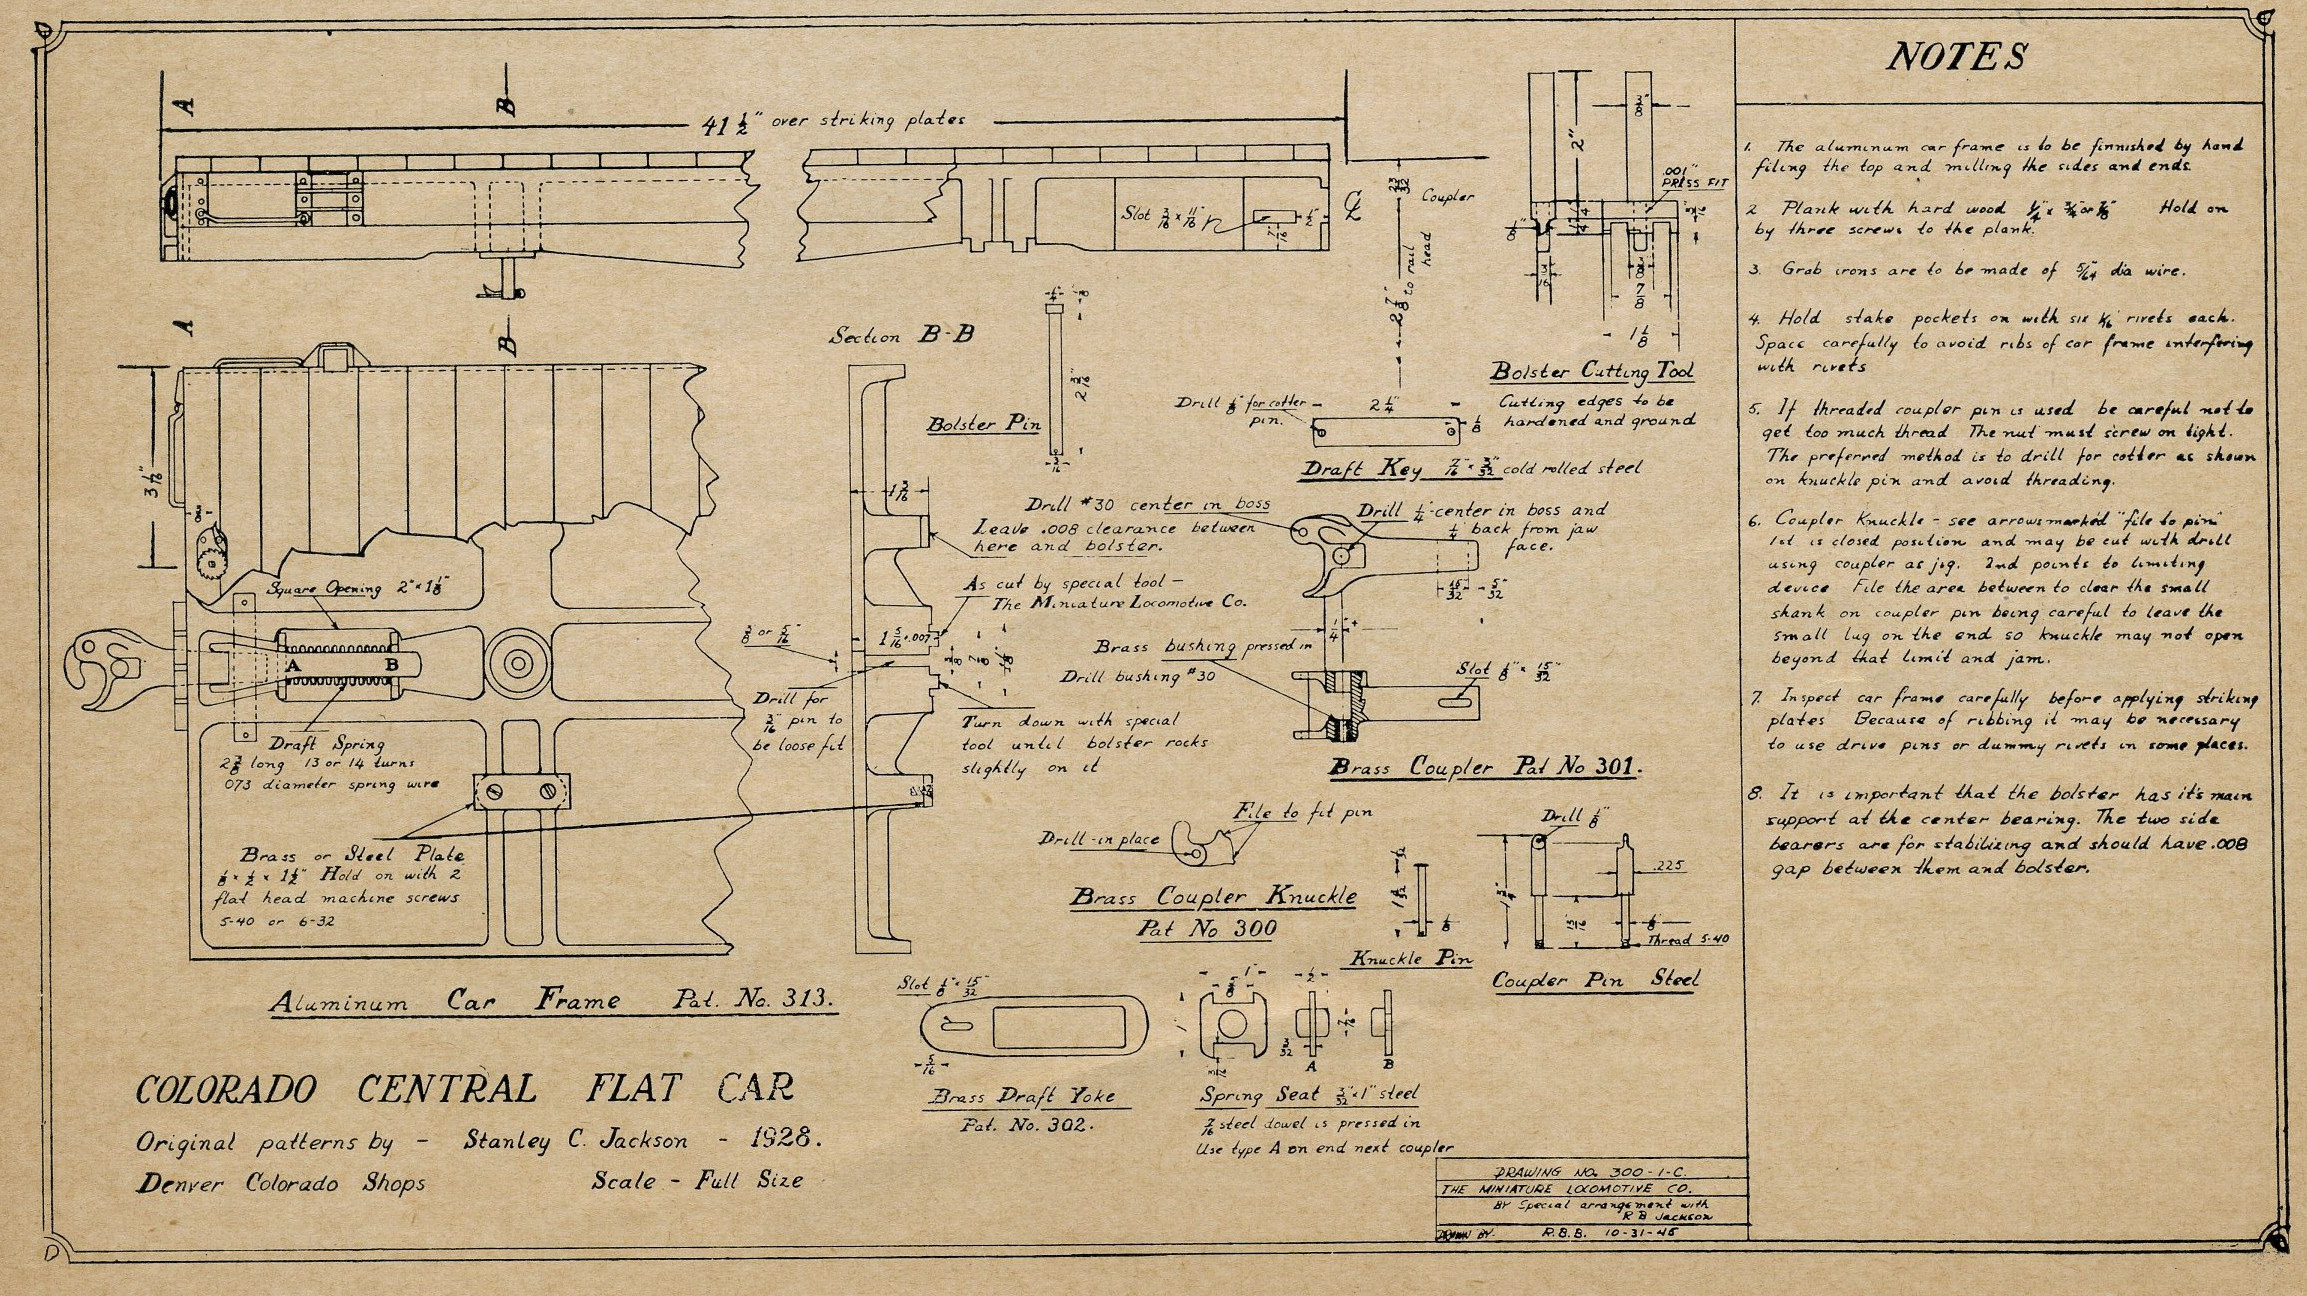 NOTES
1. The aluminum car frame is to be finnished by hand
filing the top and milling the sides and ends.
2 Plank with hard wood 1/4" x 3/4" or 7/8" Hold on
by three screws to the plank.
3. Grab irons are to be made of 5/64" dia wire.
4. Hold stake pockets on with six 1/16" rivets each.
Space carefully to avoid ribs of car frame interfering
with rivets
5. If threaded coupler pin is used be careful not to
get too much thread The nut must screw on tight.
The preferred method is to drill for cotter as shown
on knuckle pin and avoid threading.
6. Coupler Knuckle - see arrows marked "file to pin"
1st is closed position and may be cut with drill
using coupler as jig. 2nd points to limiting
device File the area between to clear the small
shank on coupler pin being careful to leave the
small lug on the end so knuckle may not open
beyond that limit and jam.
7. Inspect car frame carefully before applying striking
plates Because of ribbing it may be necessary
to use drive pins or dummy rivets in some places.
8. It is important that the bolster has it's main
support at the center bearing. The two side
bearers are for stabilizing and should have .008
gap between them and bolster.
A
B
41 1/2" over striking plates
Slot 3/16 x 11/16"
1/2"
7/16
23/32
Coupler
2 7/8" to rail head
2"
3/8"
.001"
PRESS FIT
7/8
1 1/8
Bolster Cutting Tool
Cutting edges to be
hardened and ground
A
B
Section B-B
1/4"
2 3/16"
3/16
Bolster Pin
Drill 1/8" for cotter
pin.
2 1/4"
1/8
Draft Key 7/16" x 3/32" cold rolled steel
3 1/2"
1 3/16
Drill #30 center in boss
Leave .008 clearance between
here and bolster.
As cut by special tool -
The Miniature Locomotive Co.
Drill 1/4" center in boss and
1/4" back from jaw
face.
15/32
5/32
1/4"
Square Opening 2" x 1 1/8"
A
B
3/8 or 5/16"
1 5/16 +.007
Brass bushing pressed in
Drill bushing #30
Slot 1/8" x 15/32"
Drill for
3/16" pin to
be loose fit
Turn down with special
tool until bolster rocks
slightly on it
Brass Coupler Pat No 301.
Draft Spring
2 7/8 long 13 or 14 turns
073 diameter spring wire
Brass or Steel Plate
1/8 x 1/2 x 1 1/2" Hold on with 2
flat head machine screws
5-40 or 6-32
File to fit pin
Drill - in place
Brass Coupler Knuckle
Pat No 300
1/8
Knuckle Pin
Drill 1/8"
.225
1/8
Thread 5-40
Coupler Pin Steel
Aluminum Car Frame Pat. No. 313.
Slot 1/8" x 15/32"
5/16
Brass Draft Yoke
Pat. No. 302.
1"
5/8
1/2
7/16
3/32
A
B
Spring Seat 3/32" x 1" steel
7/16 steel dowel is pressed in
Use type A on end next coupler
COLORADO CENTRAL FLAT CAR
Original patterns by - Stanley C. Jackson - 1928.
Denver Colorado Shops Scale - Full Size
DRAWING NO. 300-1-C.
THE MINIATURE LOCOMOTIVE CO.
BY Special arrangement with
R B Jackson
DRAWN BY. R.B.B. 10-31-45
D